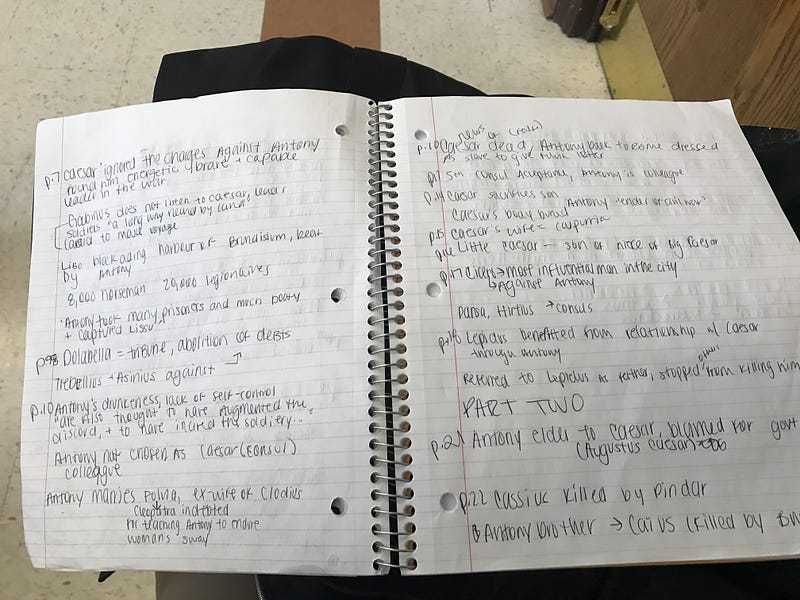 p.7 Caesar ignored the charges against Antony
found him energetic, brave + capable
leader in the war
Gabinius does not listen to Caesar, leads
soldiers "a long way round by land"
to make voyage
Libo blockading harbour of Brundisium, beat
by Antony
8,000 horseman 20,000 legionaives
"Antony took many prisoners and much booty
+ captured Lissus"
Dolabella = tribune, abolition of debts
Trebellius + Asinius against
p.10 Antony's drunkeness, lack of self-control
"are also thought to have augmented the
discord, + to have incited the soldiery...
Antony not chosen as Caesar (consul)
colleague
Antony marries Fulvia, ex-wife of Clodius
Cleopatra indebted
for teaching Antony to endure
woman's sway
news of
p.10 Caesar dead, Antony back to Rome dressed
as slave to give letter
consul, Antony is colleague
Caesar sacrifices son Antony
Caesar's body
p.15 Caesar's wife = Calpurnia
Little Caesar - son of niece of big Caesar
p.17 Cicero → most influential man in the city
↳ Against Antony
Pansa, Hirtius → consuls
p.18 Lepidus benefitted from relationship w/ Caesar
through Antony
Referred to Lepidus as father, stopped others from killing him
PART TWO
p.21 Antony elder to Caesar, blamed for govt
(Augustus Caesar)
p.22 Cassius killed by Pindar
Antony brother → Caius (killed by